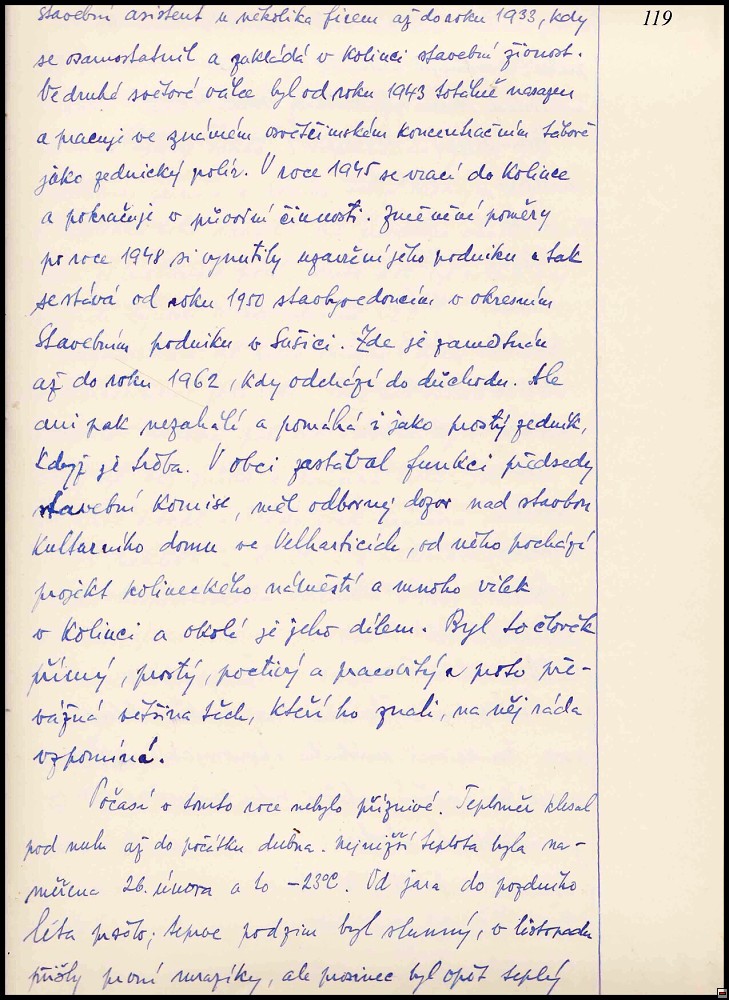 119
stavební asistent u několika firem až do roku 1933, kdy
se osamostatnil a zakládá v Kolinci stavební živnost.
Ve druhé světové válce byl od roku 1943 totálně nasazen
a pracuje ve známém osvětčimském koncentračním táboře
jako zednický polír. V roce 1945 se vrací do Kolince
a pokračuje v původní činnosti. Změněné poměry
po roce 1948 si vynutily uzavření jeho podniku a tak
se stává od roku 1950 stavbyvedoucím v okresním
Stavebním podniku v Sušici. Zde je zaměstnán
až do roku 1962, kdy odchází do důchodu. Ale
ani pak nezahálí a pomáhá i jako prostý zedník,
když je třeba. V obci zastával funkci předsedy
stavební komise, měl odborný dozor nad stavbou
Kulturního domu ve Velharticích, od něho pochází
projekt kolineckého náměstí a mnoho vilek
v Kolinci a okolí je jeho dílem. Byl to člověk
přímý, prostý, poctivý a pracovitý a proto pře-
vážná většina těch, kteří ho znali, na něj ráda
vzpomíná.
Počasí v tomto roce nebylo příznivé. Teploměr klesal
pod nulu až do počátku dubna. Nejnižší teplota byla na-
měřena 26. února a to -23°C. Od jara do pozdního
léta pršelo; teprve podzim byl slunný, v listopadu
přišly první mrazíky, ale prosinec byl opět teplý